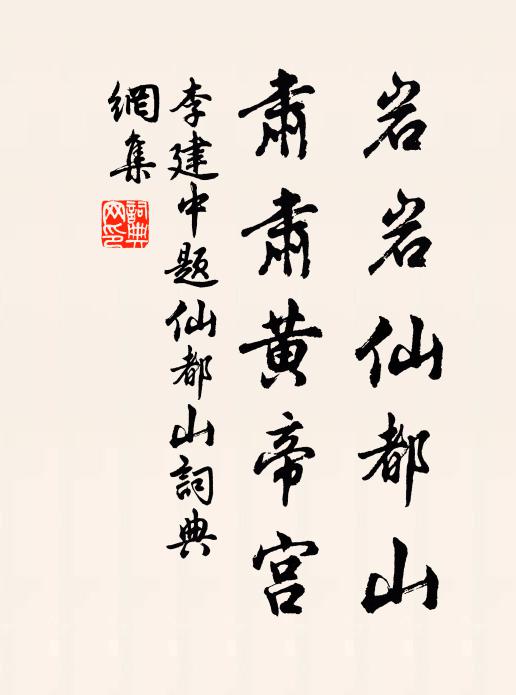 岩岩仙都山
肃肃黄帝宫
李建中题仙都山詞典
網集
詞典网印